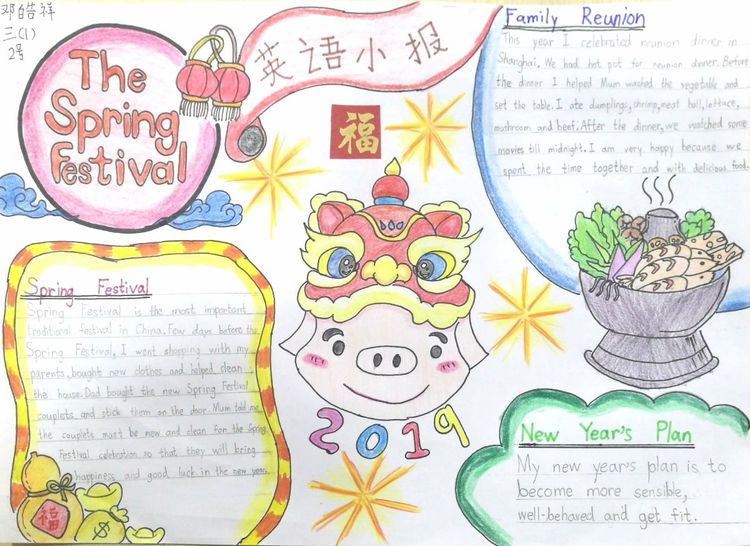 邓皓祥
三.(1)
2号
The
Spring
Festival
英语小报
福
Family Reunion
This year I celebrated reunion dinner in
Shanghai. We had hot pot for reunion dinner. Before
the dinner I helped Mum washed the vegetable and
set the table. I ate dumplings, shrimp, meat ball, lettuce,
mushroom and beef. After the dinner, we watched some
movies till midnight. I am very happy because we
spent the time together and with delicious food.
Spring Festival
Spring Festival is the most important
traditional festival in China. Few days before the
Spring Festival, I went shopping with my
parents, bought new clothes and helped clean
the house. Dad bought the new Spring Festival
couplets and stick them on the door. Mum told me
the couplets must be new and clean for the Spring
Festival celebration so that they will bring
happiness and good luck in the new year.
福
$
2019
New Year's Plan
My new year's plan is to
become more sensible,
well-behaved and get fit.